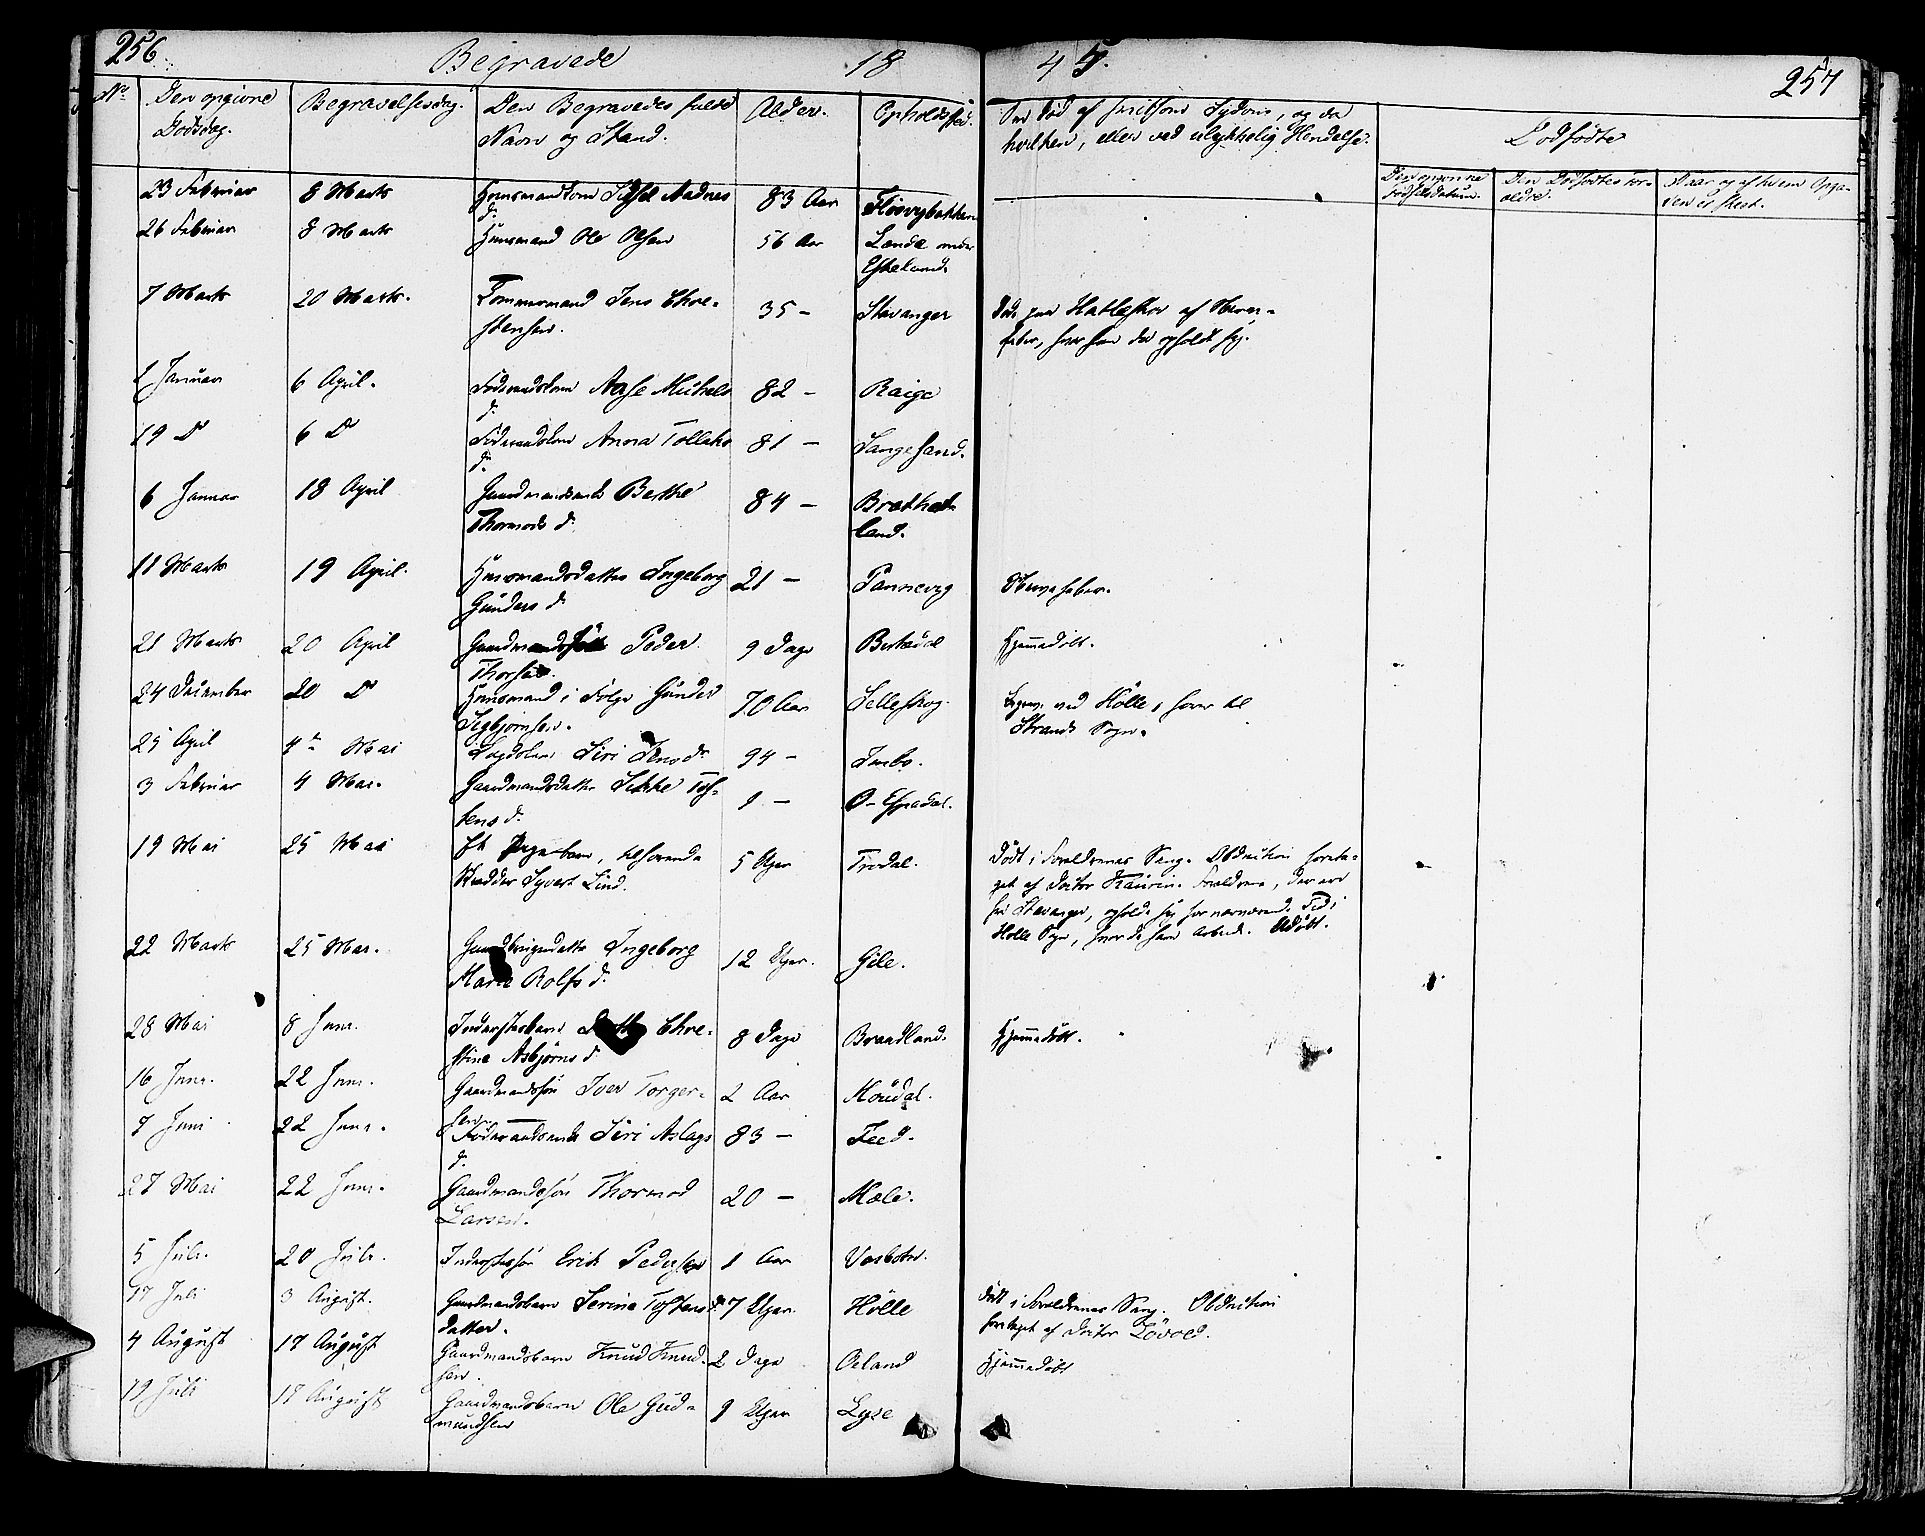 256 Begravede 18 45. 257
No Den opgivne Dødsdag. Begravelsesdag. Den Begravedes fulde Navn og Stand. Alder. Opholdssted. Om død af smitsom Sygdom, og da hvilken, eller ved ulykkelig Hendelse. Dødfødte
Den opgivne Fødselsdatum. Den Dødfødtes Forældre. Naar og af hvem Opgaven er skeet.
23 Februar 8 Marts Huusmandkone Aadnes d. 83 Aar
26 Februar 8 Marts Huusmand Ole Olsen 56 Aar Lande under Eskeland.
7 Marts 20 Marts. Tømmermand Jens Christensen. 35 - Stavanger Døde paa Hatleskor af Nervefeber, hvor han da opholdt sig.
1 Januar 6 April. Aase Michels d. 82 - Raige
19 D 6 D Anna Tolleks d. 81 - Tangesand.
6 Januar 18 April Gaardmandsenke Berthe Thormods d. 84 - Brathetland.
11 Marts 19 April. Huusmandsdatter Ingeborg Gunders d. 21 - Tannevig Nervefeber.
21 Marts 20 April Gaardmandssøn Peder Thorsen. 9 Dage Hjemmedøbt.
24 December 20 D Huusmand i Følge Gunder Sigbjørnsen. 70 Aar Selleskog. Begrav. ved Hölle, hører til Strands Sogn.
25 April 4de Mai Siri Jens d. 94 -
3 Februar 4 Mai. Gaardmandsdatter 1 - O-Espedal.
19 Mai 25 Mai Et barn, tilhørende Syvert Lind. 5 Uger Trodal. Dødt i Forældrenes Seng. Obduction foretaget af Doctor Forældrene, der ere fra Stavanger, opholde sig for nærværende Tid i Holle Sogn, hvor de have Arbeide. Udøbt.
22 Marts 25 Mai. Ingeborg Marie Rolfs d. 12 Uger. Gile.
28 Mai 8 Juni. Inderstesbarn Christine Asbjørns d. 8 Dage Brandland. Hjemmedøbt.
16 Juni. 22 Juni. Gaardmandssøn Iver Torgersen. 2 Aar
7 Juni 22 Juni. Siri Aslags d. 83 -
27 Mai 22 Juni. Gaardmandssøn Thormod Larsen. 20 - Mæle.
5 Juli. 20 Juli. Inderstessøn Erik Pedersen 1 Aar
17 Juli 3 August. Gaardmandsbarn Serine Tostensdatter. 7 Uger. Hölle Død i Forældrenes Seng. Obduction foretaget af Doctor Lövold.
4 August 17 August Gaardmandsbarn Knud Knudsen. 2 Dage Oeland Hjemmedøbt
19 Juli 17 August Gaardmandsbarn Ole Gudmundsen 9 Uger Lyse